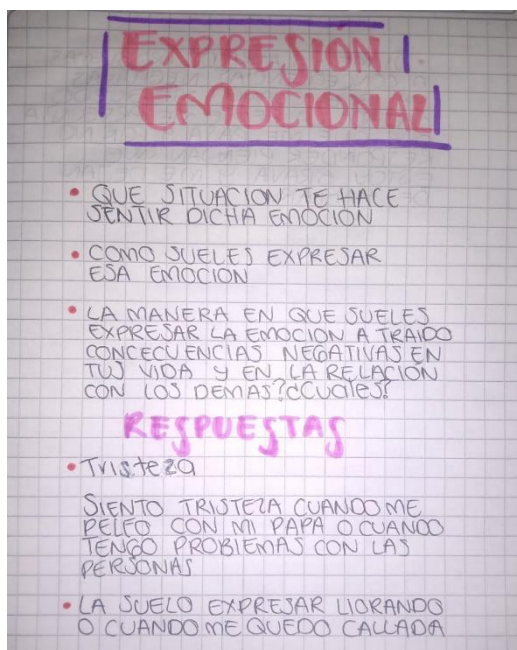 EXPRESIÓN
EMOCIONAL
• QUE SITUACION TE HACE
SENTIR DICHA EMOCION
• COMO SUELES EXPRESAR
ESA EMOCION
• LA MANERA EN QUE SUELES
EXPRESAR LA EMOCION A TRAIDO
CONCECUENCIAS NEGATIVAS EN
TUS VIDA Y EN LA RELACIÓN
CON LOS DEMAS? ¿Cuales?
RESPUESTAS
• Tristeza
SIENTO TRISTEZA CUANDO ME
PELEO CON MI PAPA O CUANDO
TENGO PROBLEMAS CON LAS
PERSONAS
• LA SUELO EXPRESAR LLORANDO
O CUANDO ME QUEDO CALLADA